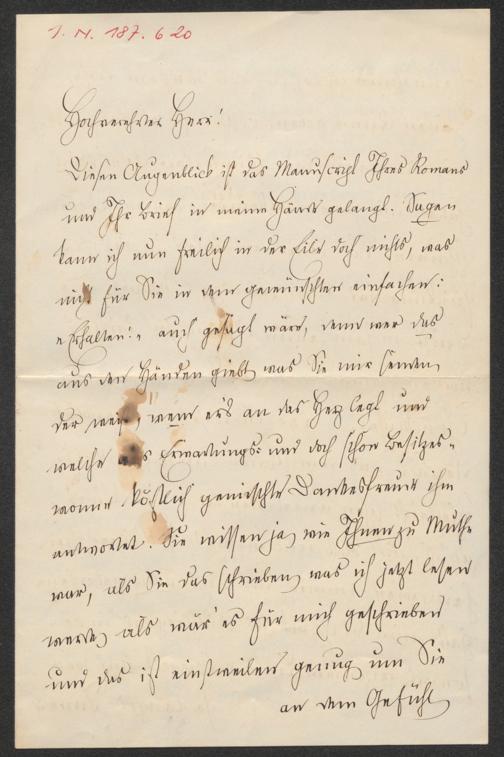 I. N. 187.620
Hochverehrter Herr!
Diesen Augenblick ist das Manuscript Ihres Romans
und Ihr Brief in meine Hände gelangt. Sagen
kann ich nun freilich in der Eile doch nichts, was
nicht für Sie in dem gewünschten einfachen:
"Erhalten!" auch gesagt wäre, denn wer das
aus den Händen giebt, was Sie mir senden,
der weiß, wem er's an das Herz legt und
welche aus Erwartungs- und doch schon Besitzes-
wonne köstlich gemischte Dankesfreude ihm
antwortet. Sie wissen ja, wie Ihnen zu Muthe
war, als Sie das schrieben, was ich jetzt lesen
werde, als wär' es für mich geschrieben
und das ist einstweilen genug um Sie
an dem Gefühl